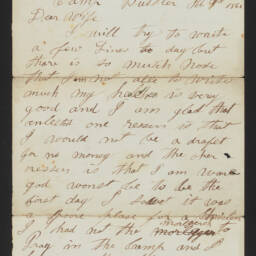 Camp
Dear Wife
I will try to write
a few lines to day but
there is so much nose
that I am not able to write
much my health is very
good and I am glad that
enlisted one reason is that
I would not be a draft
for no money and the other
ressen is that I am
god wonst be to be the
first day I it was
a poore place for a
I had not the
Pray in the Camp and I